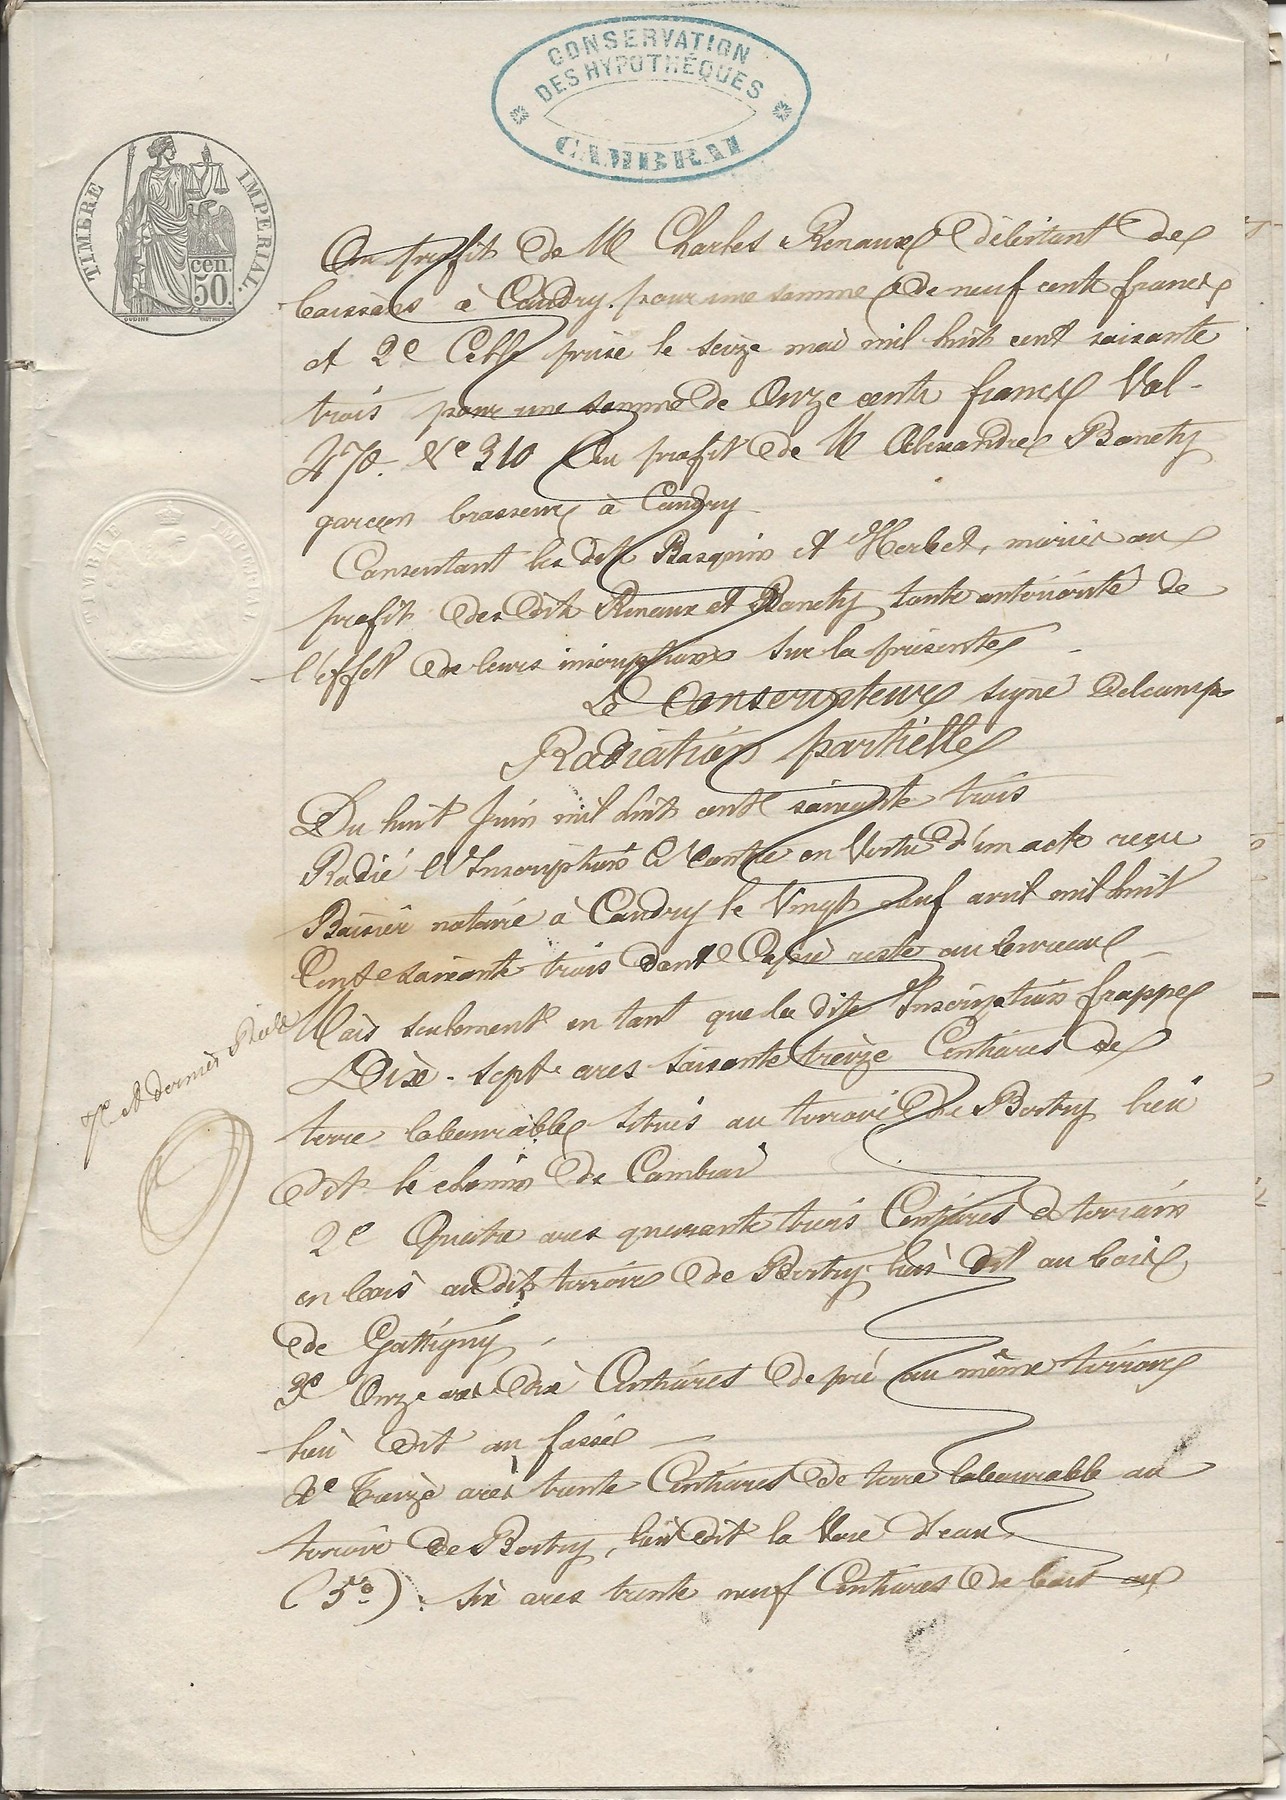 CONSERVATION
DES HYPOTHÈQUES
CAMBRAI
TIMBRE IMPERIAL.
cen.
50.
TIMBRE IMPERIAL
Au profit de M Charles Renaux débitant de
boissons à Caudry pour une somme de neuf cent francs
et 2e Celle prise le seize mai mil huit cent soixante
trois pour une somme de Onze cents francs Vol.
470. No 310 Au profit de M Alexandre Banchy
garçon brasseur à Caudry
Consentant les dit Basquin et Herbet, mariés au
profit des dits Renaux et Banchy toute antériorité de
l'effet de leurs inscriptions sur la présente
Le Conservateur signé Delcamp
Radiation partielle
Du huit Juin mil huit cent soixante trois
Radié l'Inscription Ci Contre en Vertu d'un acte reçu
notaire à Caudry le Vingt neuf avril mil huit
Cent soixante trois dont Copie reste au bureau
Mais seulement en tant que la dite Inscription frappe
Dix-sept ares soixante treize Centiares de
terre labourable situés au terroir de Bertry lieu
dit le chemin de Cambrai
2e Quatre ares quarante trois Centiares de terrain
en bois au dit terroir de Bertry lieu dit au bois
de Gattigny
3e Onze ares dix Centiares de pré au même terroir
lieu dit au fossé
4e Treize ares trente Centiares de terre labourable au
terroir de Bertry, lieu dit la Voie d'eau
(5o). Six ares trente neuf Centiares de bois au
7e et dernier Rôle